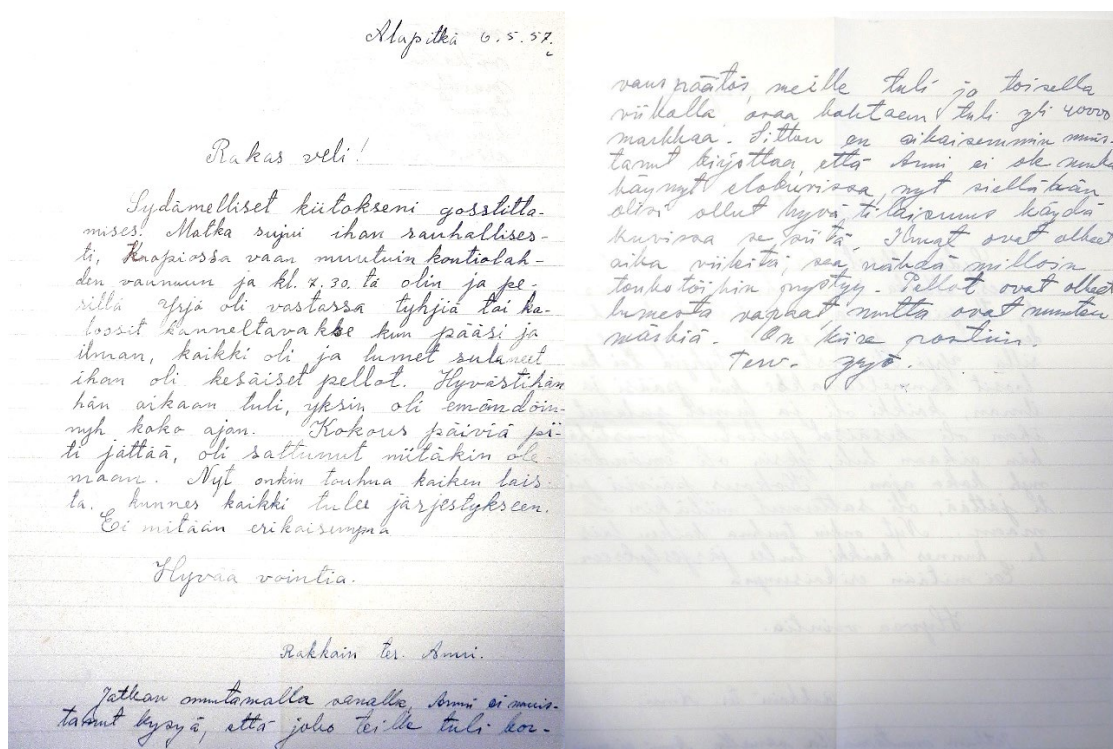 Alapitkä 6.5.57.
Rakas veli!
Sydämelliset kiitokseni gosstitta-
mises. Matka sujui ihan rauhallises-
ti, Kuopiossa vaan muutuin kontiolah-
den vaunuun ja kl. 7.30. tä olin ja pe-
rillä Yrjö oli vastassa tyhjiä tai ka-
loosit kanneltavakse kun pääsi ja
ilman, kaikki oli ja lumet sulaneet
ihan oli kesäiset pellot. Hyvästihän
hän aikaan tuli, yksin oli emändöin-
nyh koko ajan. Kokous päiviä pi-
ti jättää, oli sattunut niitäkin ole-
maan. Nyt onkin touhua kaiken lais-
ta. kunnes kaikki tulee järjestykseen.
Ei mitään erikoisempaa
Hyvää vointia.
Rakkain ter. Anni.
Jatkan muutamalla sanalla, Anni ei muis-
tanut kysyä, että joko teille tuli kor-
vauspäätös, meille tuli jo toisella
viikolla, osaa kohtaen tuli yli 40000
markkaa. Sitten en aikaisemmin muis-
tanut kirjottaa, että Anni ei ole
käynyt elokuvissa, nyt sielläkään
olisi ollut hyvä tilaisuus käydä
kuvissa se siitä. Ilmat ovat olleet
aika viileitä, saa nähdä milloin
toukotöihin pystyy. Pellot ovat olleet
lumesta vapaat, mutta ovat muuten
märkiä. On kiire postiin.
Terv. Yrjö.